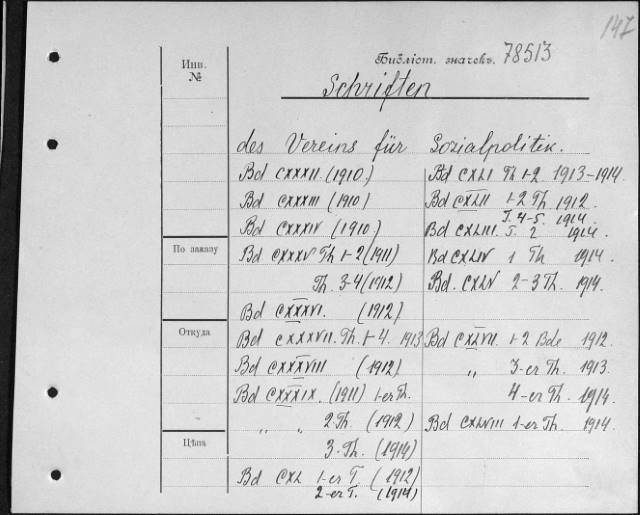 147
Инв.
№
Библіот. значекъ. 78513
Schriften
des Vereins für Sozialpolitik.
Bd CXXXII. (1910.)
Bd CXXXIII (1910)
Bd CXXXIV (1910.)
По заказу
Bd CXXXV Th 1-2 (1911)
Th. 3-4 (1912)
Bd CXXXVI. (1912)
Откуда
Bd CXXXVII. Th. 1-4. 1913
Bd CXXXVIII (1912)
Bd CXXXIX. (1911) 1-er Th.
„ „ 2 Th. (1912)
Цѣна
3. Th. (1914)
Bd CXL 1-er T. (1912)
2-er T. (1914)
Bd CXLI Th 1-2 1913-1914.
Bd CXLII 1-2 Th. 1912.
T. 4-5. 1914.
Bd CXLIII. T. 2 1914.
Bd CXLIV 1 Th 1914.
Bd. CXLV 2-3 Th. 1914.
Bd CXLVII. 1-2 Bde 1912.
„ 3-er Th. 1913.
4-er Th. 1914.
Bd CXLVIII 1-er Th. 1914.